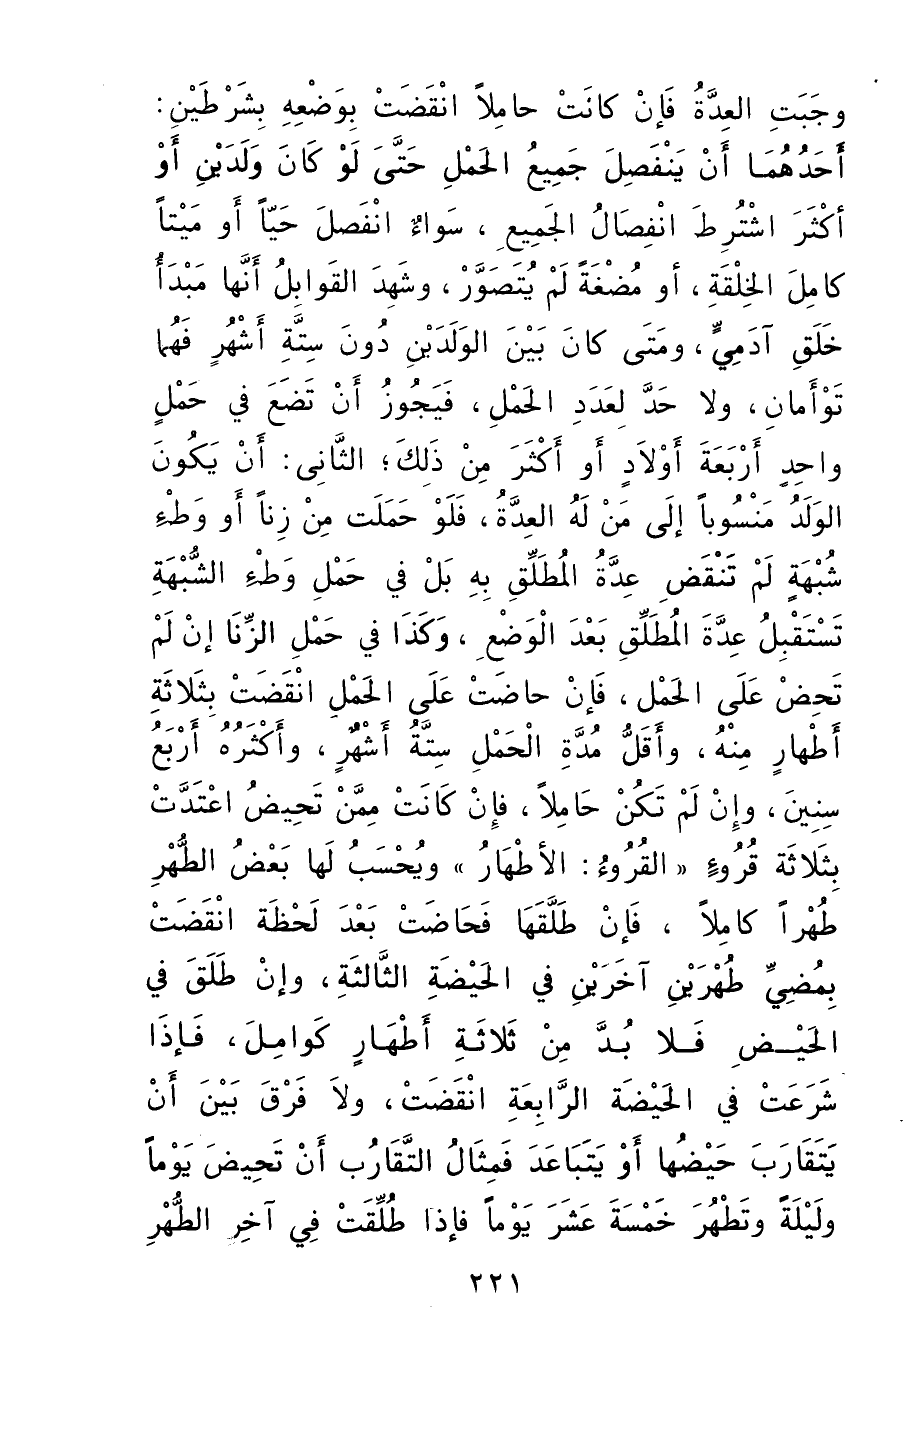 وجَبَتِ العِدَّةُ فَإنْ كانَتْ حامِلاً انْقَضَتْ بِوَضْعِهِ بِشَرْطَيْنِ :
أَحَدُهُمَا أَنْ يَنْفَصِلَ جَمِيعُ الحَمْلِ حَتَّى لَوْ كَانَ وَلَدَيْنِ أَوْ
أكْثَرَ اشْتُرِطَ انْفِصَالُ الجَمِيعِ ، سَواءٌ انْفَصلَ حَيّاً أَو مَيْتاً
كامِلَ الخِلْقَةِ، أو مُضْغَةً لَمْ يُتَصَوَّرْ، وشَهِدَ القَوابِلُ أَنَّها مَبْدَأُ
خَلَقِ آدَمِيٍّ، ومَتَى كانَ بَيْنَ الوَلَدَيْنِ دُونَ سِتَّةِ أَشْهُرٍ فَهُما
تَوْأَمانِ، ولا حَدَّ لِعَدَدِ الحَمْلِ، فَيَجُوزُ أَنْ تَضَعَ في حَمْلٍ
واحِدٍ أَرْبَعَةَ أَوْلاَدٍ أو أَكْثَرَ مِنْ ذَلِكَ؛ الثَّانِى: أَنْ يَكُونَ
الوَلَدُ مَنْسُوباً إلَى مَنْ لَهُ العِدَّةُ، فَلَوْ حَمَلَت مِنْ زِناً أَو وَطْءِ
شُبْهَةٍ لَمْ تَنْقَضِ عِدَّةُ المُطَلِّقِ بِهِ بَلْ في حَمْلِ وَطْءِ الشُّبْهَةِ
تَسْتَقْبِلُ عِدَّةَ المُطَلِّقِ بَعْدَ الْوَضْعِ ، وَكَذَا في حَمْلِ الزِّنَا إنْ لَمْ
تَحِضْ عَلَى الحَمْلِ، فَإنْ حاضَتْ عَلَى الحَمْلِ انْقَضَتْ بِثَلاثَةِ
أَطْهارٍ مِنْهُ، وأَقَلُّ مُدَّةِ الْحَمْلِ سِتَّةُ أَشْهُرٍ، وأَكْثَرُهُ أَرْبَعُ
سِنِينَ، وإنْ لَمْ تَكُنْ حَامِلاً، فإنْ كَانَتْ مِمَّنْ تَحِيضُ اعْتَدَّتْ
بِثَلاثَة قُرُوءٍ « القُرُوءُ: الأطْهَارُ » ويُحْسَبُ لَها بَعْضُ الطُّهْرِ
طُهْراً كامِلاً ، فَإنْ طَلَّقَهَا فَحَاضَتْ بَعْدَ لَحْظَة انْقَضَتْ
بِمُضِيِّ طُهْرَيْنِ آخَرَيْنِ في الحَيْضَةِ الثَّالثَةِ، وإنْ طَلَقَ في
الحَيْـضِ فَـلا بُدَّ مِنْ ثَلاثَةِ أَطْهَارٍ كَوامِلَ، فَإذَا
شَرَعَتْ في الحَيْضَة الرَّابِعَةِ انْقَضَتْ، ولاَ فَرْقَ بَيْنَ أَنْ
يَتَقَارَبَ حَيْضُها أَوْ يَتَبَاعَدَ فَمِثَالُ التَّقَارُب أَنْ تَحِيضَ يَوْماً
ولَيْلَةً وتَطْهُرَ خَمْسَةَ عَشَرَ يَوْماً فإذا طُلِّقَتْ فِي آخِرِ الطُّهْرِ
٢٢١